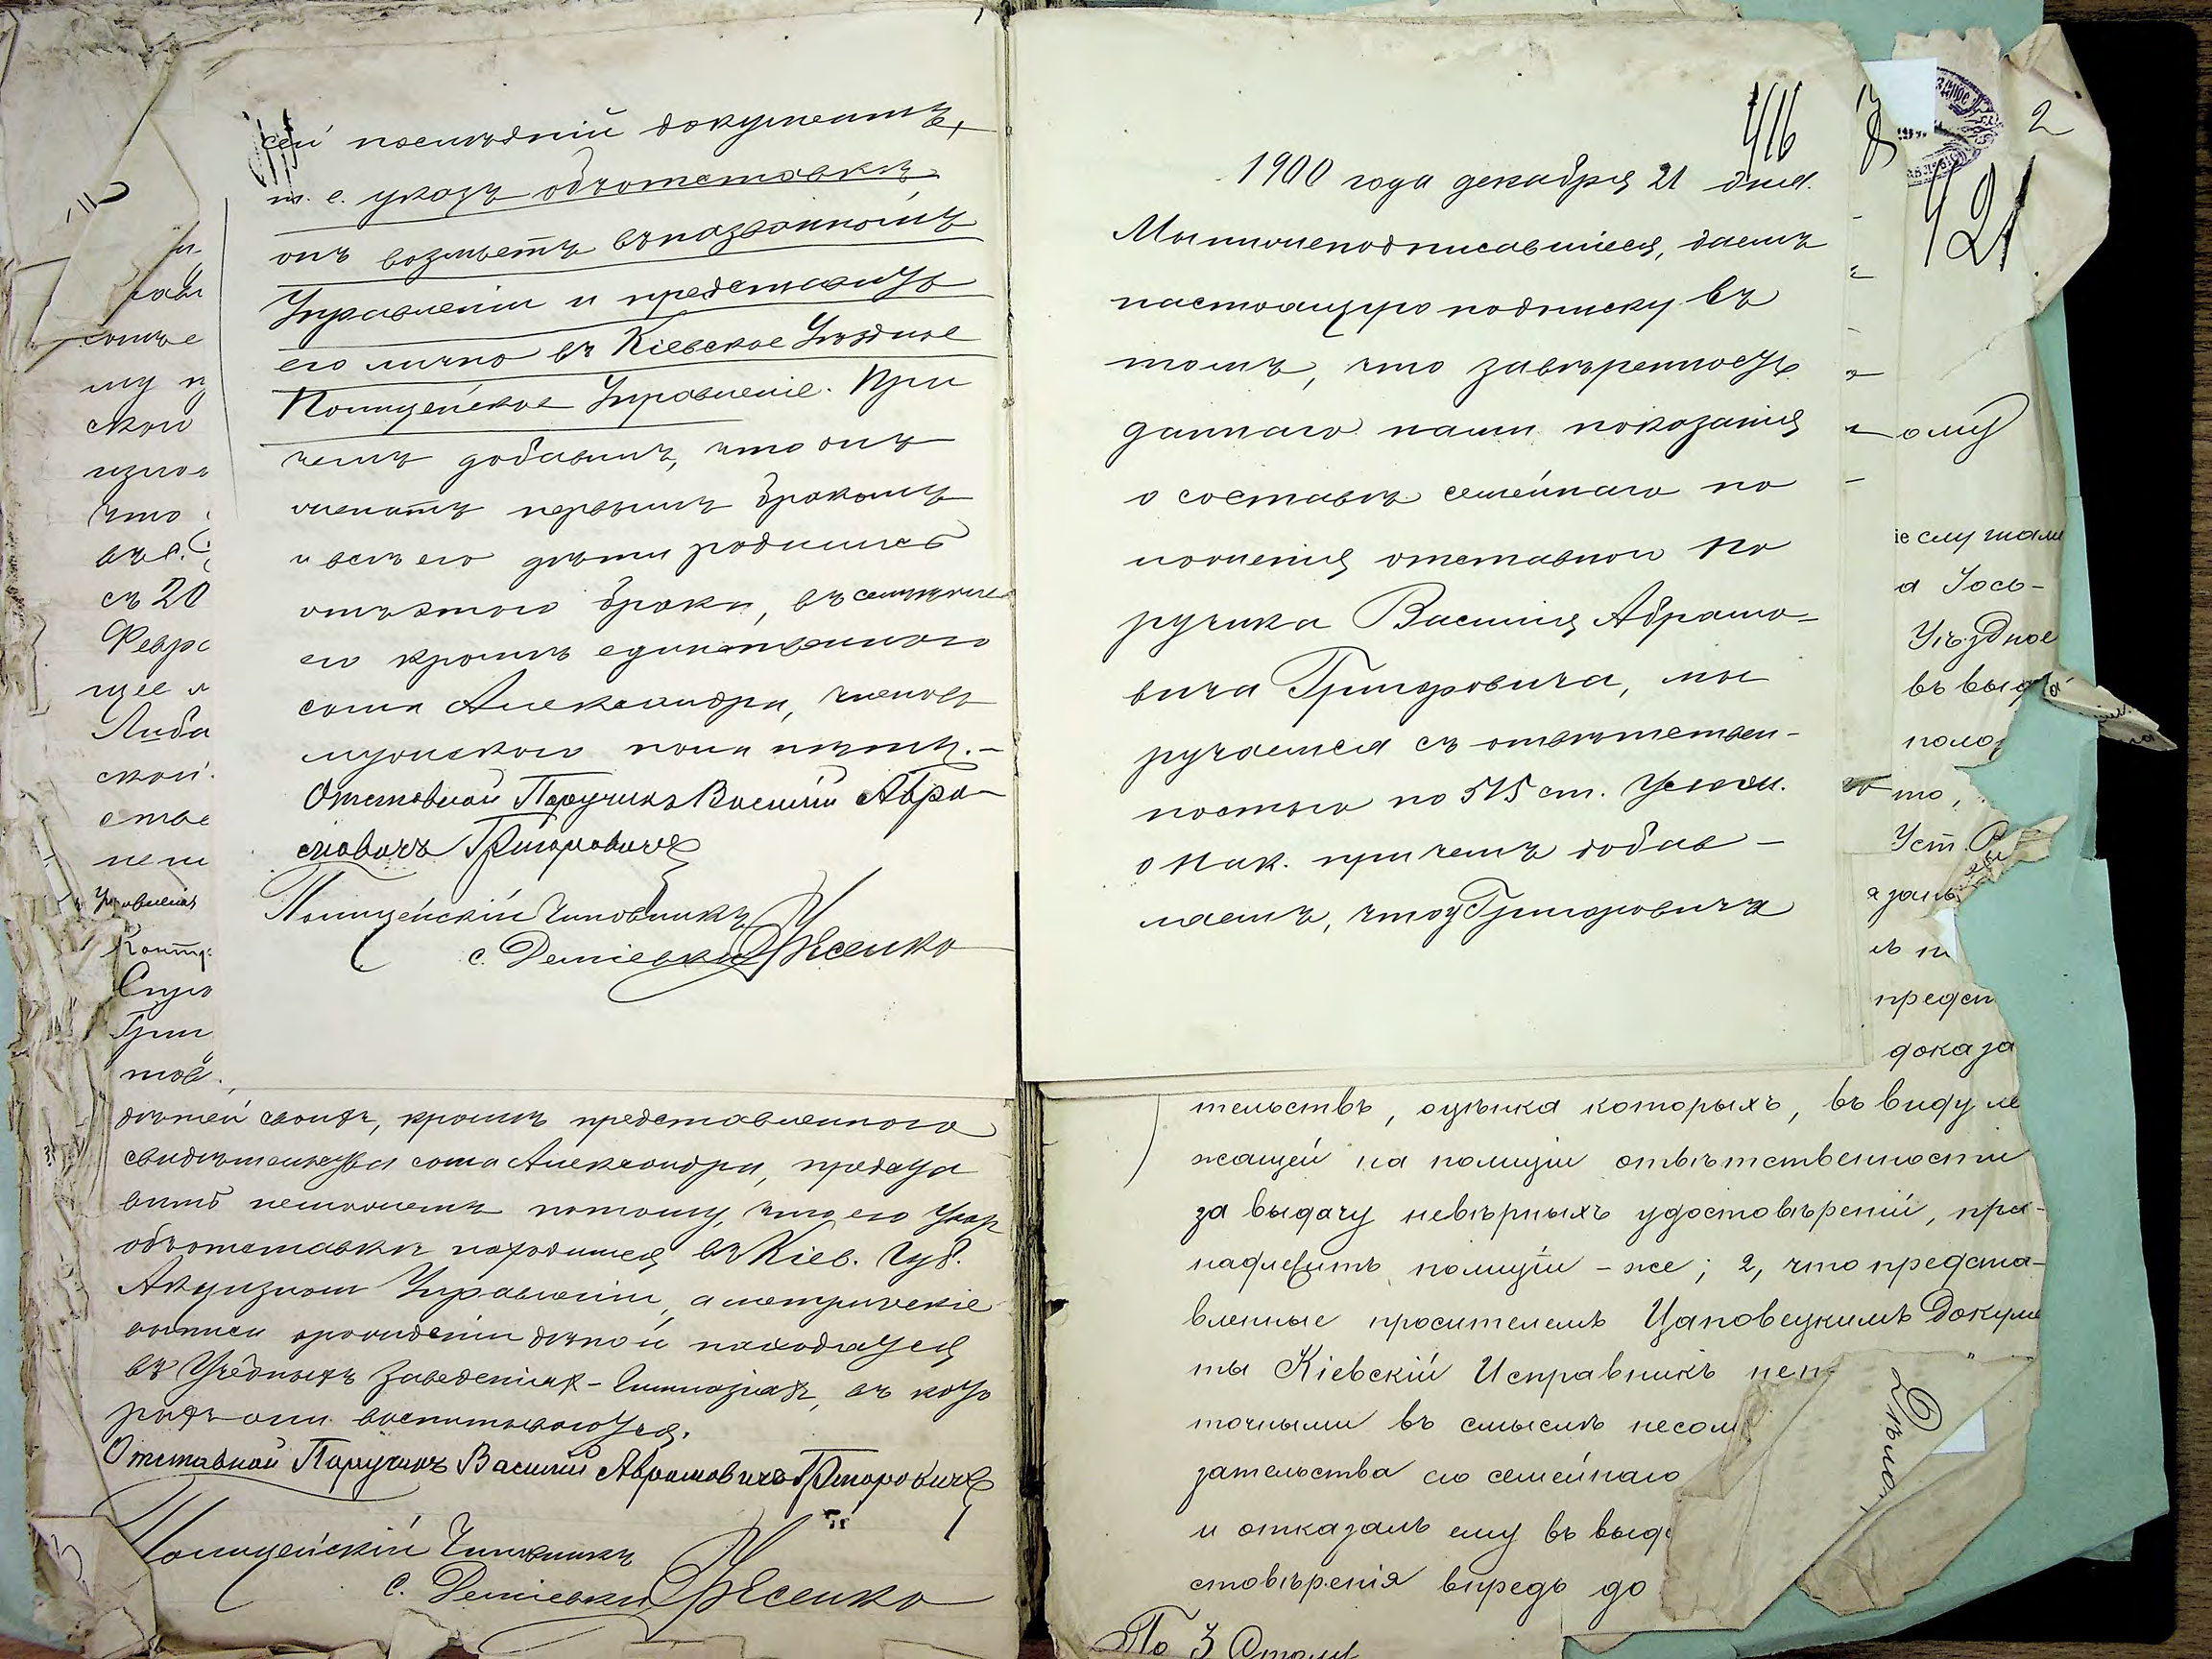 сей послѣдній документъ,
т. е. указъ объ отставкѣ,
онъ возьметъ въ названномъ
Управленіи и представитъ
его лично въ Кіевское Уѣздное
Полицейское Управленіе. При
чемъ добавилъ, что онъ
женатъ первымъ бракомъ
и всѣ его дѣти родились
отъ этого брака, въ семействѣ
его кромѣ единственного
сына Александра, членовъ
мужского пола нѣтъ.—
Отставной Поручикъ Василій Абра-
мовичъ Григоровичъ
Полицейскій Чиновникъ
с. Деміевки
дѣтей своихъ, кромѣ представленного
свидѣтельства сына Александра, предста
вить неможетъ потому, что его Указ
объ отставкѣ находится въ Кіев. Губ.
Акцизномъ Управленіи, а метрическіе
выписи о рожденіи дѣтей находятся
въ Учебныхъ Заведеніях-Гимназіях, въ кото
рыхъ они воспитываются.
Отставной Поручикъ Василій Абрамовичъ Григоровичъ
Полицейскій Чиновникъ
с. Деміевки
съ 20
Февра
Либа
ской
что
Управленія
Контр
Служ
Григ
416
1900 года декабря 21 дня.
Мы нижеподписавшіеся, даемъ
настоящую подписку въ
томъ, что завѣренность
даннаго нами показанія
о составѣ семейнаго по
ложенія отставной По
ручика Василія Абрамо-
вича Григоровича, мы
ручаемся съ отвѣтствен-
ностью по 515 ст. Улож.
о Нак. при чемъ добав-
ляемъ, что у Григоровича
2
421
ому
іе слушали
а Іось-
Уѣздное
въ выда
поло
то,
Уст.
предст
доказа
тельствъ, оцѣнка которыхъ, въ виду ле
жащей на полиціи отвѣтственности
за выдачу невѣрныхъ удостовѣреній, при-
надлежитъ полиціи-же; 2, что предста-
вленные просителемъ Цаповецкимъ Докуме
ты Кіевскій Исправникъ не п
точными въ смыслѣ несом
зательства его семейнаго
и отказалъ ему въ выда
стовѣренія впредь до
По 3 Столу
Дѣло